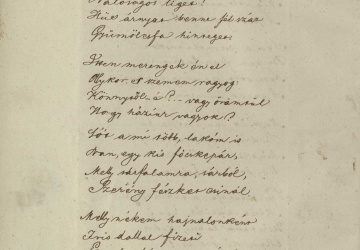 Valóságos liget!
Hüs árnyat benne fél száz
Gyümölcsfa hinteget.
Itten merengek én el
Olykor. S szemem ragyog
Könnytől-é?.. vagy örömtül
Hogy háziúr vagyok?
Sőt a mi több, lakóm is
Van, egy kis fecskepár,
Mely várfalamra, sárból,
Szerény fészket csinál
Mely nékem hajnalonként
Friss dallal fizeti